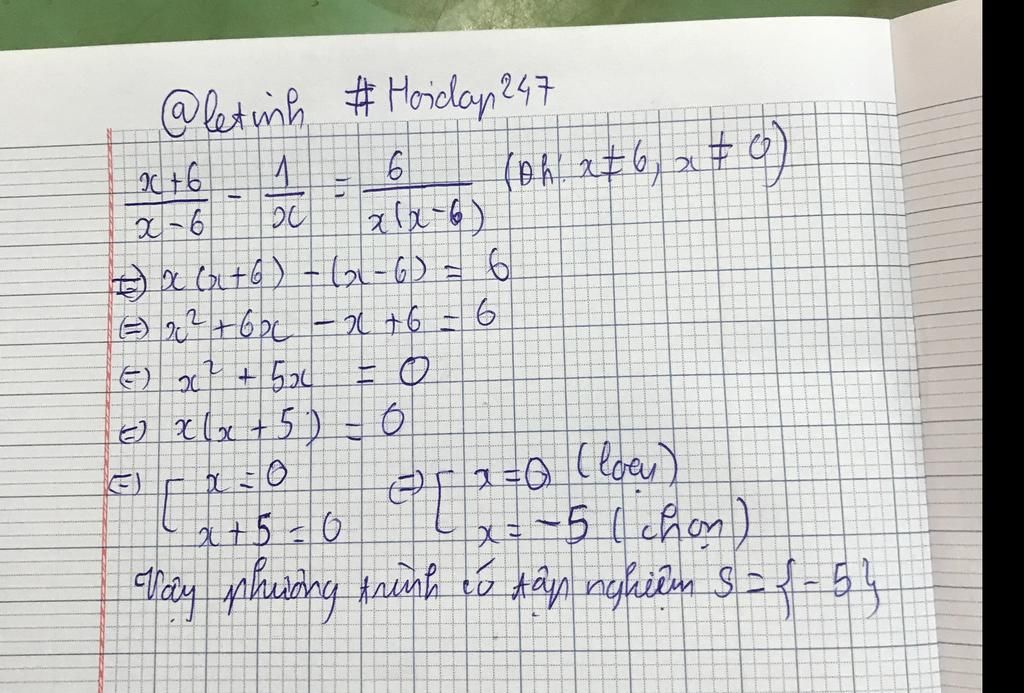 @letinh #Hoidap247
\frac{x+6}{x-6} - \frac{1}{x} = \frac{6}{x(x-6)} (Đk: x ≠ 6, x ≠ 0)
⇔ x(x+6) - (x-6) = 6
⇔ x² + 6x - x + 6 = 6
⇔ x² + 5x = 0
⇔ x(x+5) = 0
⇔ [ x = 0 ⇔ [ x = 0 (loại)
x + 5 = 0 x = -5 (chọn)
Vậy phương trình có tập nghiệm S = {-5}